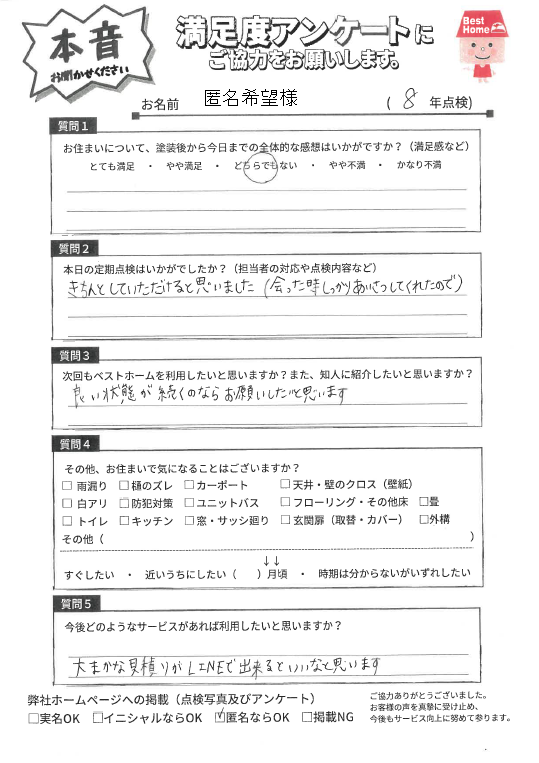 本音
お聞かせください
満足度アンケートに
ご協力をお願いします。
Best
Home
お名前 匿名希望様 ( 8 年点検)
質問1
お住まいについて、塗装後から今日までの全体的な感想はいかがですか？（満足感など）
とても満足 ・ やや満足 ・ どちらでもない ・ やや不満 ・ かなり不満
質問2
本日の定期点検はいかがでしたか？（担当者の対応や点検内容など）
きちんとしていただけると思いました（会った時しっかりあいさつしてくれたので）
質問3
次回もベストホームを利用したいと思いますか？また、知人に紹介したいと思いますか？
良い状態が続くのならお願いしたいと思います
質問4
その他、お住まいで気になることはございますか？
□ 雨漏り □樋のズレ □カーポート □天井・壁のクロス（壁紙）
□ 白アリ □防犯対策 □ユニットバス □フローリング・その他床 □畳
□ トイレ □キッチン □窓・サッシ廻り □玄関扉（取替・カバー） □外構
その他（ ）
↓↓
すぐしたい ・ 近いうちにしたい（ ）月頃 ・ 時期は分からないがいずれしたい
質問5
今後どのようなサービスがあれば利用したいと思いますか？
大まかな見積りがLINEで出来るといいなと思います
弊社ホームページへの掲載（点検写真及びアンケート）
□実名OK □イニシャルならOK ☑匿名ならOK □掲載NG
ご協力ありがとうございました。
お客様の声を真摯に受け止め、
今後もサービス向上に努めて参ります。